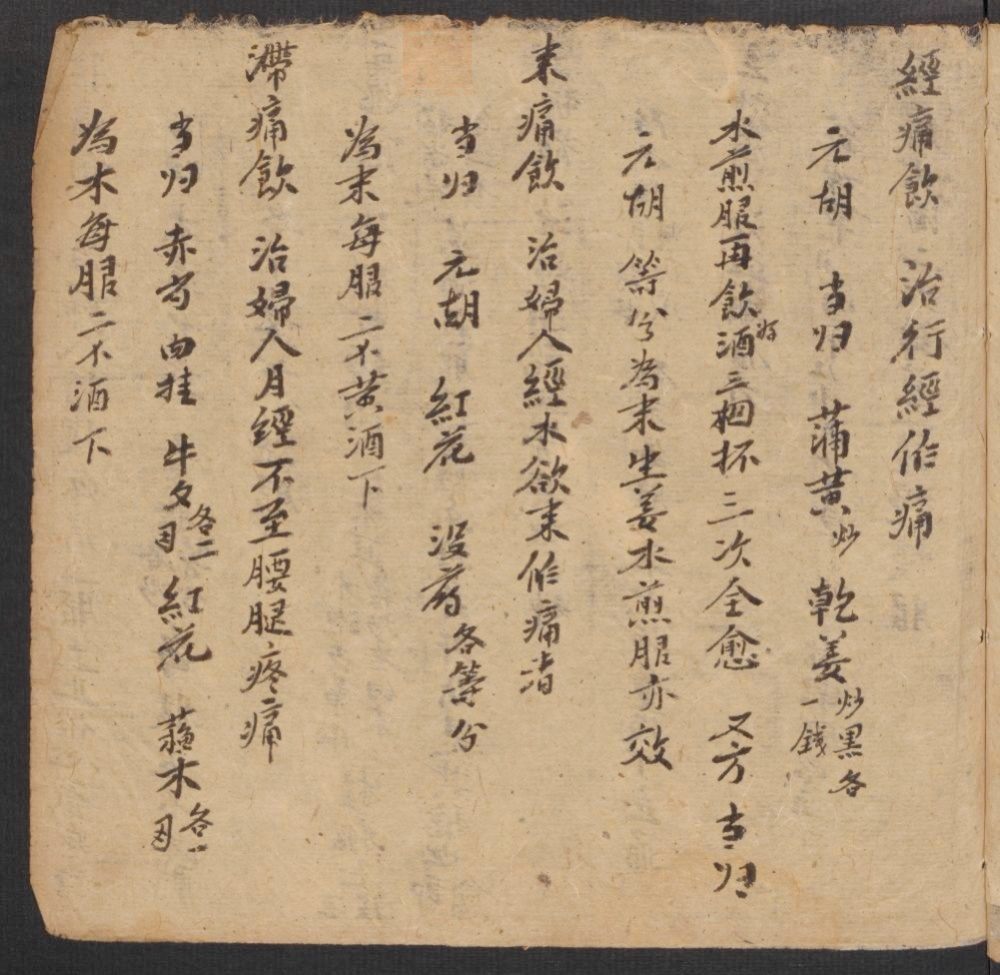 經痛飲 治行經作痛
元胡 当归 蒲黄炒 乾姜炒黑各一錢
水煎服再飲酒好三四杯三次全愈 又方 当归
元胡 等分为末生姜水煎服亦效
来痛飲 治婦人經水欲来作痛者
当归 元胡 紅花 没药各等分
为末每服二不黄酒下
滯痛飲 治婦人月經不至腰腿疼痛
当归 赤芍 肉桂 牛夕各二 紅花 蘇木各一
为木每服二不酒下